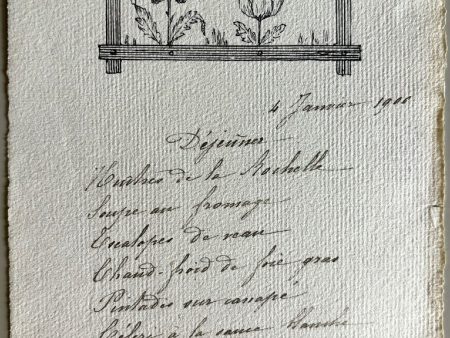 4 Janvier 1906
Déjeuner
Huîtres de la Rochelle
Soupe au fromage
Escalopes de veau
Chaud-froid de foie gras
Pintades sur canapé
Céleri à la sauce blanche